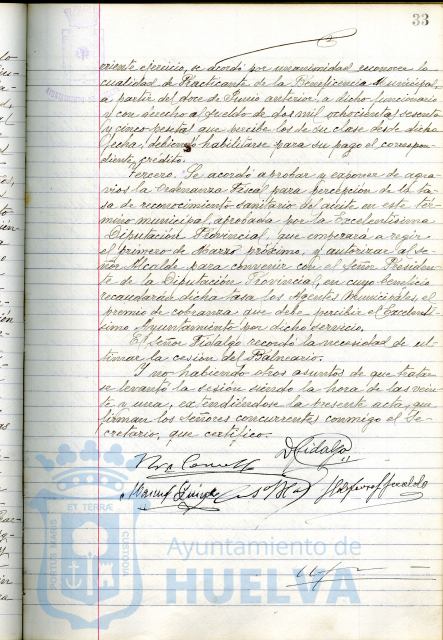 33
rriente ejercicio, se acordó por unanimidad reconocer la
cualidad de Practicante de la Beneficencia Municipal,
a partir del doce de Junio anterior, a dicho funcionario
y con derecho al sueldo de dos mil ochocientas sesenta
y cinco pesetas que percibe los de su clase desde dicha
fecha, debiendo habilitarse para su pago el correspon-
diente crédito.
Tercero. Se acordó aprobar y exponer de agra-
vios la Ordenanza Fiscal para percepción de la ta-
sa de reconocimiento sanitario del aceite en este tér-
mino municipal, aprobada por la Excelentísima
Diputación Provincial, que empezará a regir
el primero de Marzo próximo, y autorizar al se-
ñor Alcalde para convenir con el Señor Presiden-
te de la Diputación Provincial, en cuyo beneficio
recaudarán dicha tasa los Agentes Municipales, el
premio de cobranza que debe percibir el Excelentí-
simo Ayuntamiento por dicho servicio.
El Señor Fidalgo recordó la necesidad de ul-
timar la cesión del Balneario.
Y no habiendo otros asuntos de que tratar
se levantó la sesión siendo la hora de las vein-
te y una, extendiéndose la presente acta, que
firman los Señores concurrentes conmigo el Se-
cretario, que certifico.
D Fidalgo
PORTUS MARIS ET TERRAE CUSTODIA
Ayuntamiento de
HUELVA